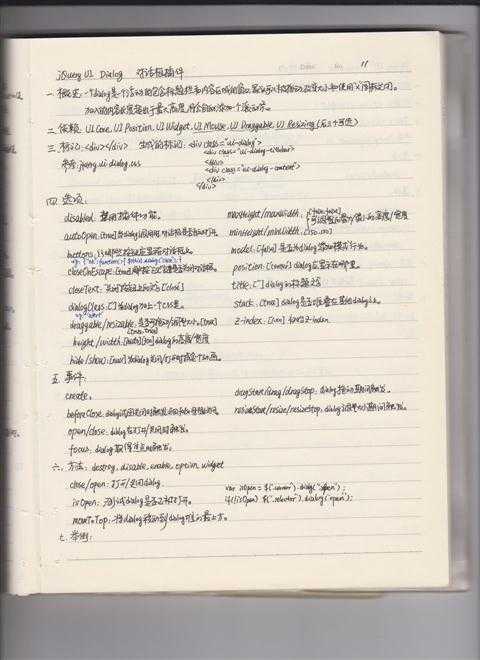 11
jQuery UI Dialog 对话框插件
一. 概述: 一个dialog是个浮动的包含标题栏和内容区域的窗口. 默认可以被拖动, 改变大小和使用'x'图标关闭.
如果内容长度超出于最大高度, 将会自动添加一个滚动条.
二. 依赖. UI Core, UI Position, UI Widget, UI Mouse, UI Draggable, UI Resizing (后三个可选)
三. 标记: <div></div> 生成的标记: <div class="ui-dialog">
<div class="ui-dialog-titlebar">
参考: jquery.ui.dialog.css </div>
<div class="ui-dialog-content">
</div>
</div>
四. 选项.
disabled. 禁用插件功能. maxHeight/maxWidth: [false,false]
可设置的最大(最小)的高度/宽度
autoOpen: [true] 当dialog 对话框是否自动打开. minHeight/minWidth. [150,150]
buttons. 按钮应显示对话框上. model. [false] 是否为dialog 模式行为.
closeOnEscape: [true] 对话框. position. [center] dialog应显示在哪里.
closeText: 关闭按钮上的文字 [close] title: ['']dialog的标题文字
dialogClass: [''] 为dialog加上一个css类. stack. [true] dialog是否堆叠在其他dialog上.
draggable/resizable. 是否可拖动/调节大小. [true] z-index: [1000] 初始z-index
[true, true]
height/width. [auto][300] dialog的高度/宽度
hide/show: 当dialog关闭/打开时
五. 事件.
create. dragStart/drag/dragStop. dialog拖动期间触发.
beforeClose. dialog试图关闭时触发. resizeStart/resize/resizeStop. dialog调节大小期间触发.
open/close. dialog在打开/关闭时触发.
focus. dialog取得焦点时触发.
六. 方法: destroy, disable, enable, option, widget
close/open: 打开/关闭dialog. var isOpen = $(".selector").dialog("isOpen");
isOpen: 测试dialog是否已被打开. if(!isOpen) $(".selector").dialog("open");
moveToTop: 将dialog移动到dialog堆的最上方.
七. 举例: